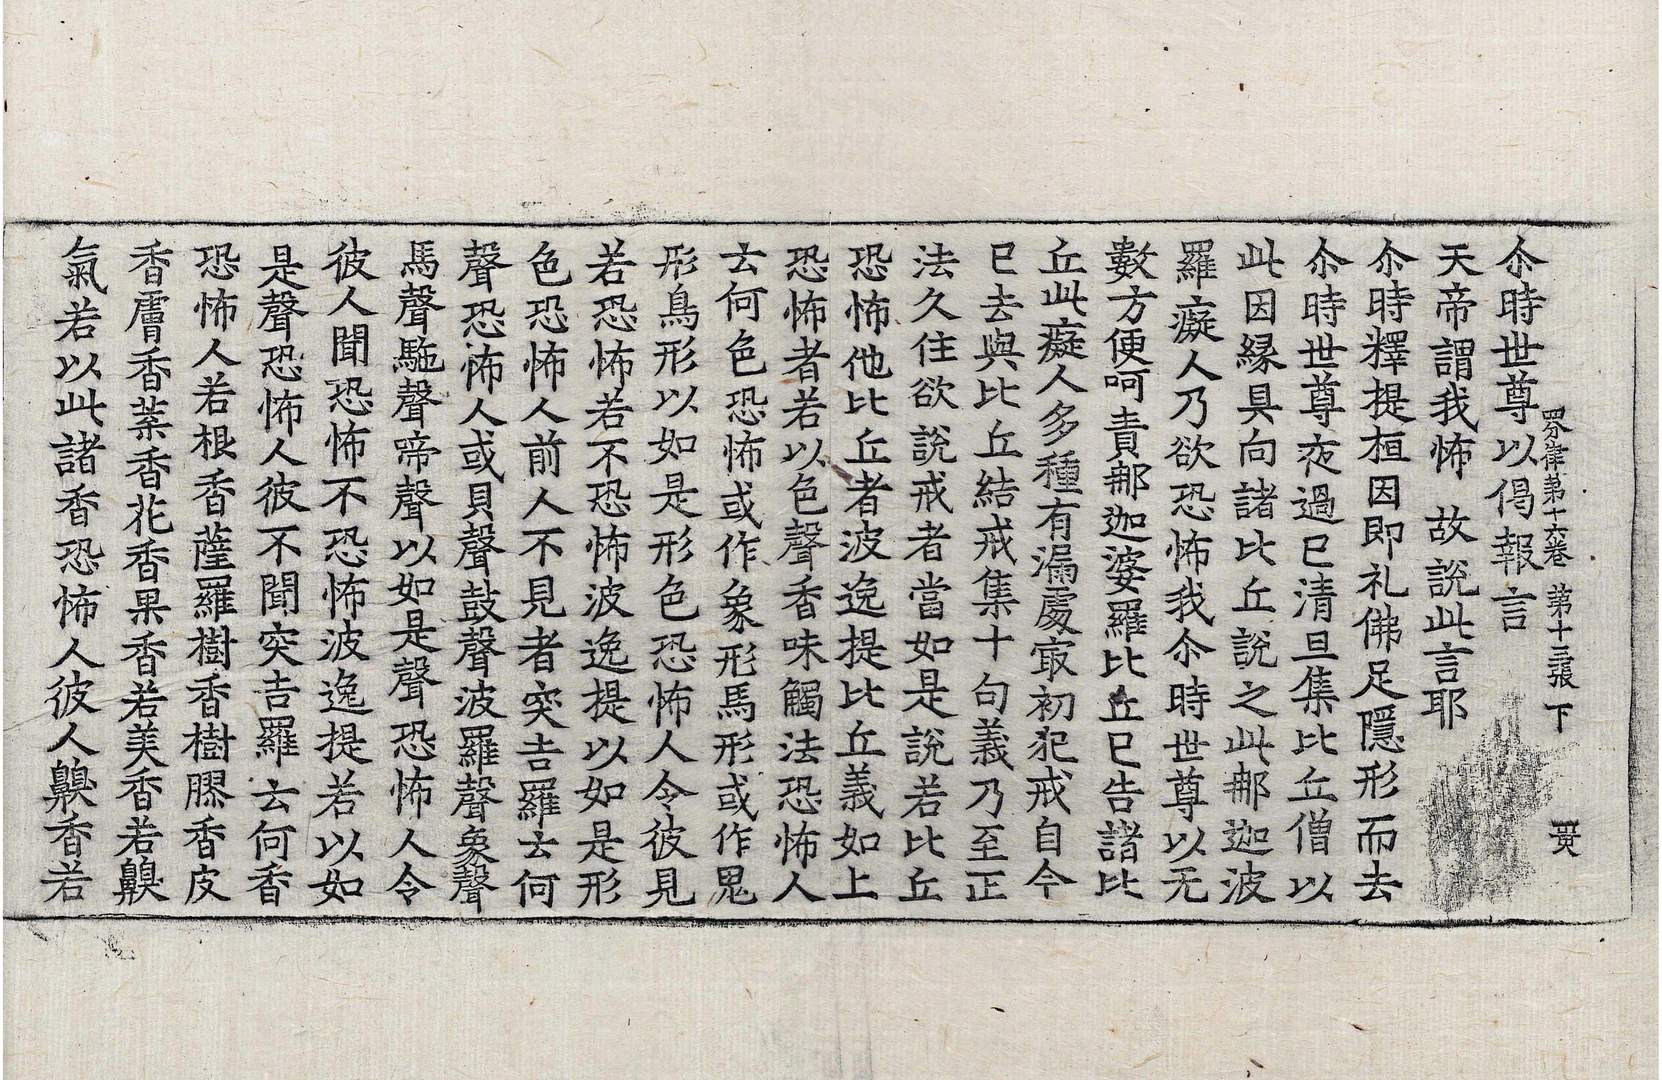 尒時世尊以偈報言
四分律第十六卷 第十三張 下
天帝謂我怖　故說此言耶
尒時釋提桓因即礼佛足隱形而去
尒時世尊夜過已清旦集比丘僧以
此因緣具向諸比丘說之此那迦波
羅癡人乃欲恐怖我尒時世尊以无
數方便呵責那迦婆羅比丘已告諸比
丘此癡人多種有漏處㝡初犯戒自今
已去與比丘結戒集十句義乃至正
法久住欲說戒者當如是說若比丘
恐怖他比丘者波逸提比丘義如上
恐怖者若以色聲香味觸法恐怖人
云何色恐怖或作象形馬形或作鬼
形鳥形以如是形色恐怖人令彼見
若恐怖若不恐怖波逸提以如是形
色恐怖人前人不見者突吉羅云何
聲恐怖人或貝聲鼓聲波羅聲象聲
馬聲駞聲啼聲以如是聲恐怖人令
彼人聞恐怖不恐怖波逸提若以如
是聲恐怖人彼不聞突吉羅云何香
恐怖人若根香薩羅樹香樹膠香皮
香膚香葉香花香果香若美香若臭
氣若以此諸香恐怖人彼人齅香若